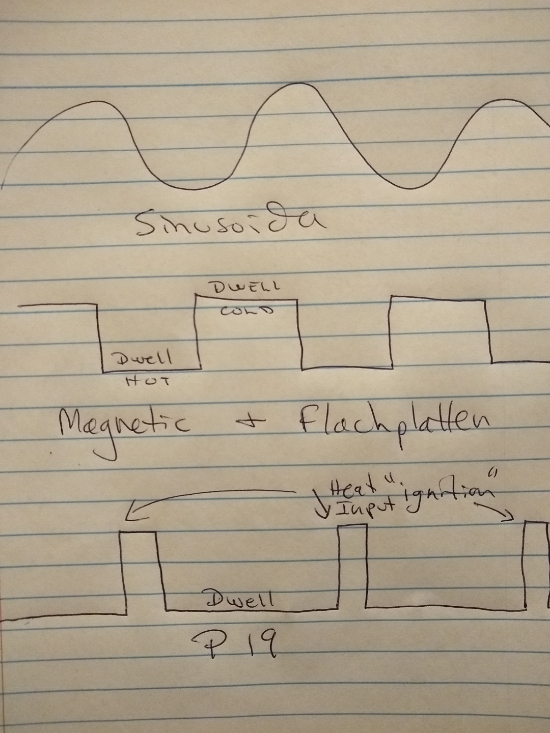 Sinusoida
DWELL
COLD
Dwell
HOT
Magnetic + Flachplatten
Heat "ignition"
Input
Dwell
P 19